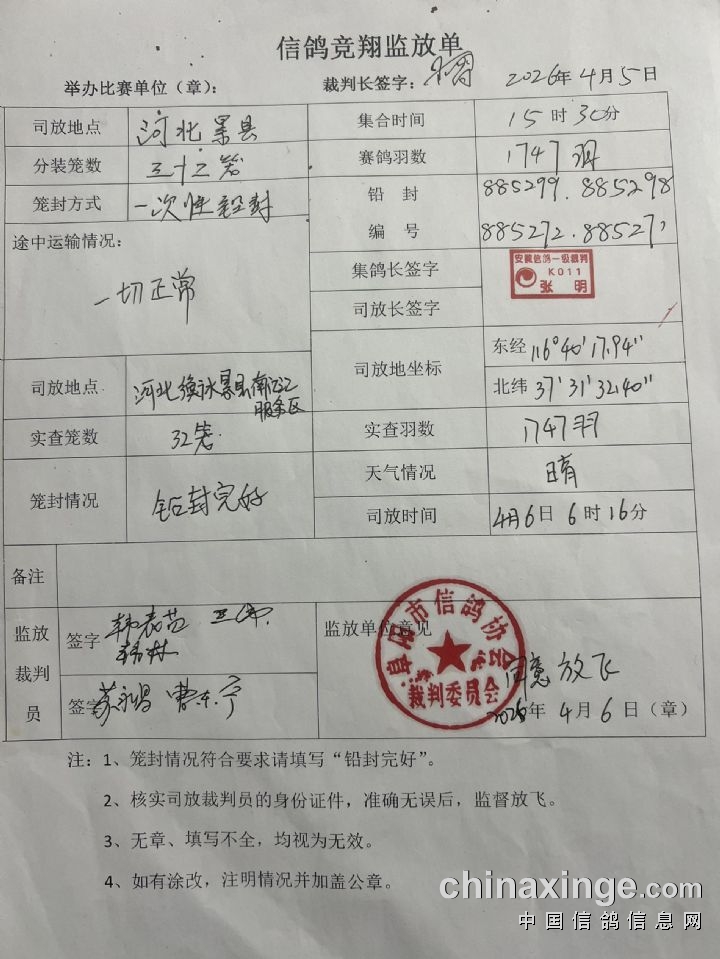 信鸽竞翔监放单
举办比赛单位（章）： 裁判长签字： 2026年4月5日
司放地点 河北景县 集合时间 15时30分
分装笼数 三十二笼 赛鸽羽数 1747羽
笼封方式 一次性铅封 铅封 885299.885298
编号 885272.885271
途中运输情况：
一切正常
集鸽长签字 安徽信鸽一级裁判 K011 张明
司放长签字
司放地坐标 东经116°40'17.94"
北纬37°31'32.40"
司放地点 河北衡水景县
服务区
实查笼数 32笼 实查羽数 1747羽
天气情况 晴
笼封情况 铅封完好 司放时间 4月6日6时16分
备注
监放裁判员 签字 监放单位意见
签字 曹东宁 同意放飞
阜阳市信鸽协会
裁判委员会
2026年4月6日（章）
注：1、笼封情况符合要求请填写“铅封完好”。
2、核实司放裁判员的身份证件，准确无误后，监督放飞。
3、无章、填写不全，均视为无效。
4、如有涂改，注明情况并加盖公章。
chinaxinge.com
中国信鸽信息网